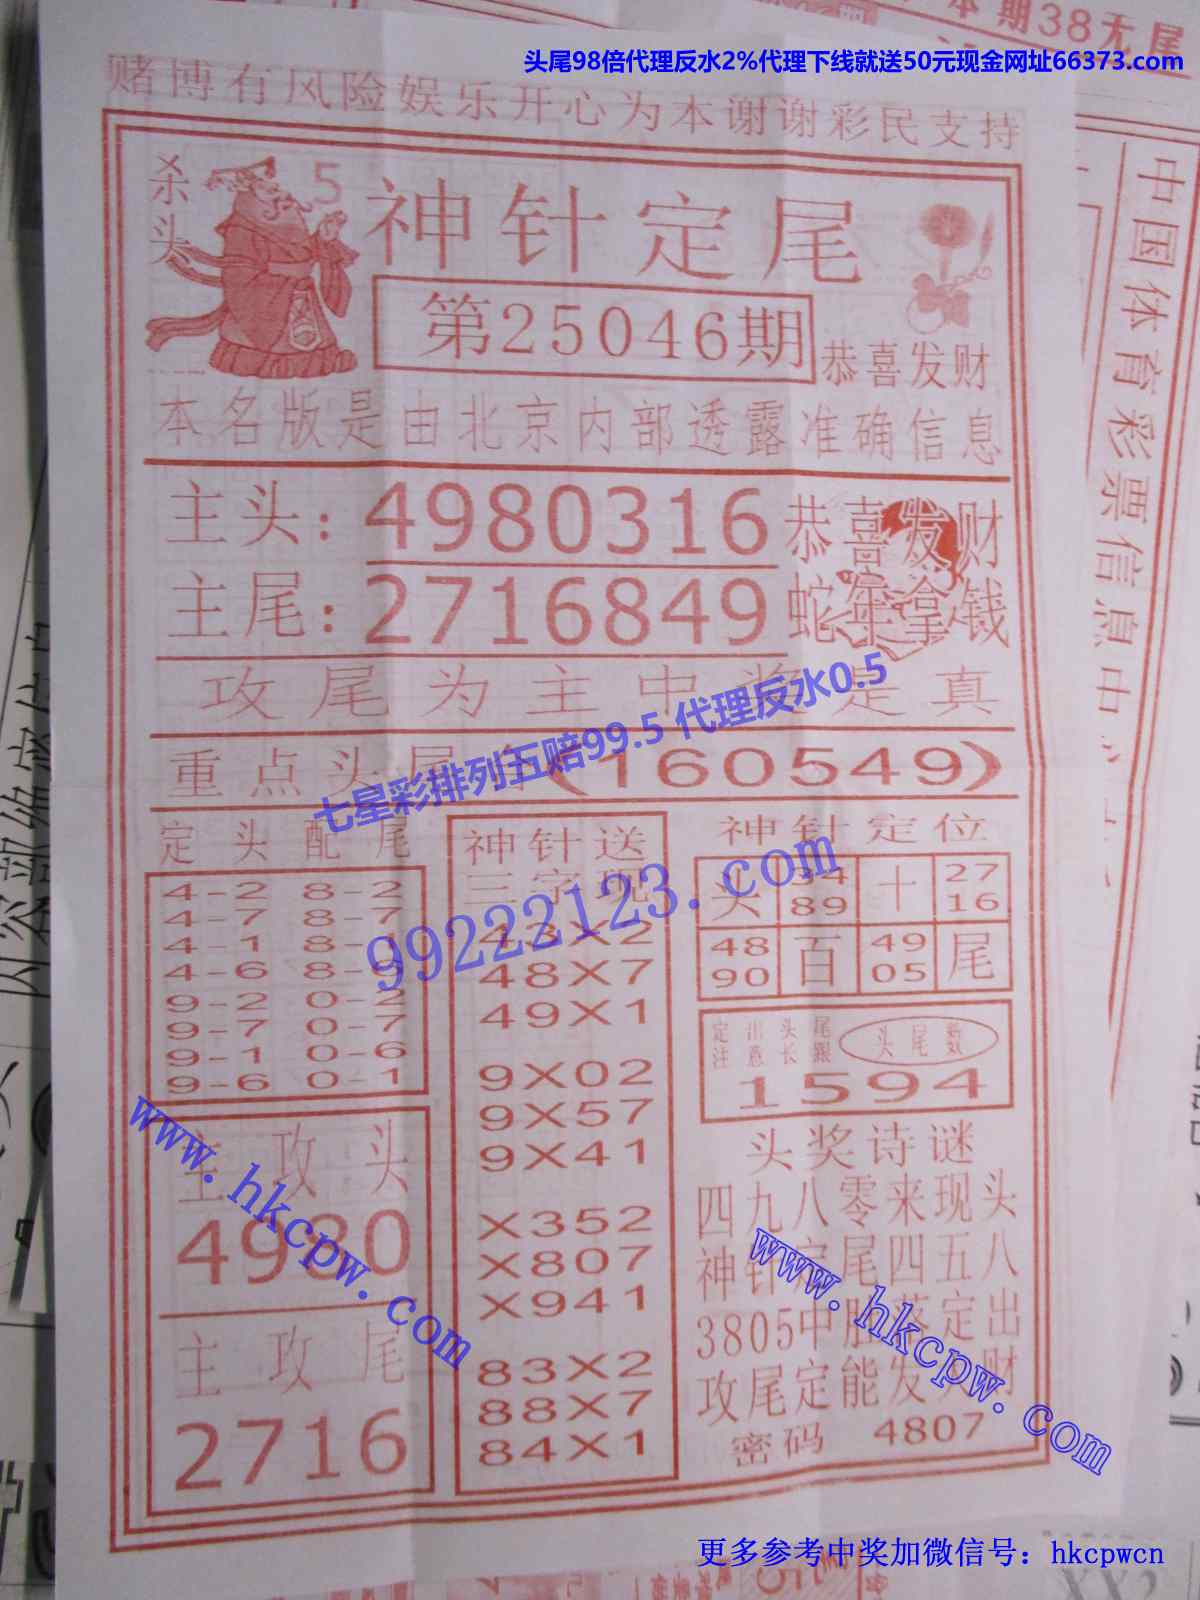 本期38无尾
头尾98倍代理反水2%代理下线就送50元现金网址66373.com
赌博有风险娱乐开心为本谢谢彩民支持
杀头 5
神针定尾
第25046期
恭喜发财
本名版是由北京内部透露准确信息
主头:4980316 恭喜发财
主尾:2716849 蛇年拿钱
攻尾为主中奖是真
重点头尾 (160549)
七星彩排列五赔99.5 代理反水0.5
定头配尾
4-2 8-2
4-7 8-7
4-1 8-1
4-6 8-6
9-2 0-2
9-7 0-7
9-1 0-6
9-6 0-1
主攻头
4980
主攻尾
2716
神针送
三字现
43X2
48X7
49X1
9X02
9X57
9X41
X352
X807
X941
83X2
88X7
84X1
神针定位
头 34 89 十 27 16
48 90 百 49 05 尾
定出头尾
注意长跟
头尾
1594
头奖诗谜
四九八零来现头
神针定尾四五八
3805中胆落定出
攻尾定能发大财
密码 4807
中国体育彩票信息中
99222123.com
www.hkcpw.com
www.hkcpw.com
更多参考中奖加微信号：hkcpwcn
XX2